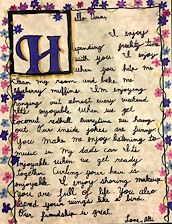 Hello Dear,
I enjoy
spending quality time
with you. I enjoy
when you help me
clean my room and bake me
blueberry muffins. I'm enjoying
hanging out almost every weekend
It's enjoyable when we get
Coconut redbull everytime we hang
out. Our inside jokes are funny
You make me enjoy listening to
music in my dads car. It's
Enjoyable when we get ready
together. Curling your hair is
enjoyable. I enjoy sharing makeup
You are full of life. You also
spread your wings like a bird.
Our friendship is great.
Love,